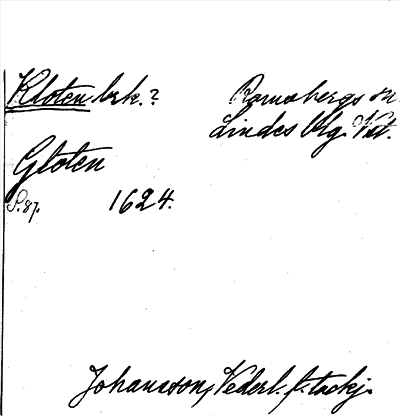 Kloten brk.? Ramsbergs sn
Lindes blg. Vstl.
Gloten
S. 87. 1624.
Johansson, Nederl. f. tackj.